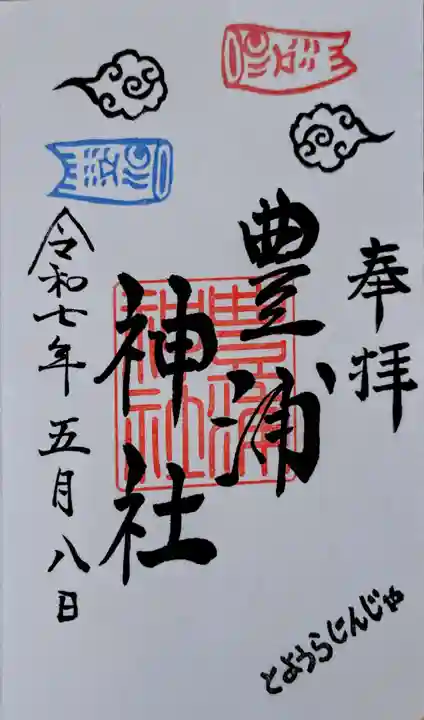 奉拝
豊浦
神社
令和七年五月八日
とようらじんじゃ
豊浦
神社